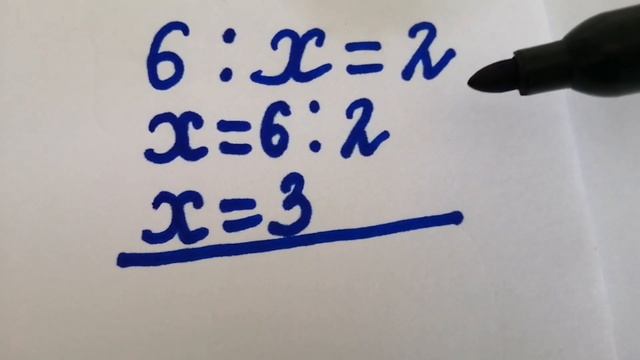 6 : x = 2
x = 6 : 2
x = 3